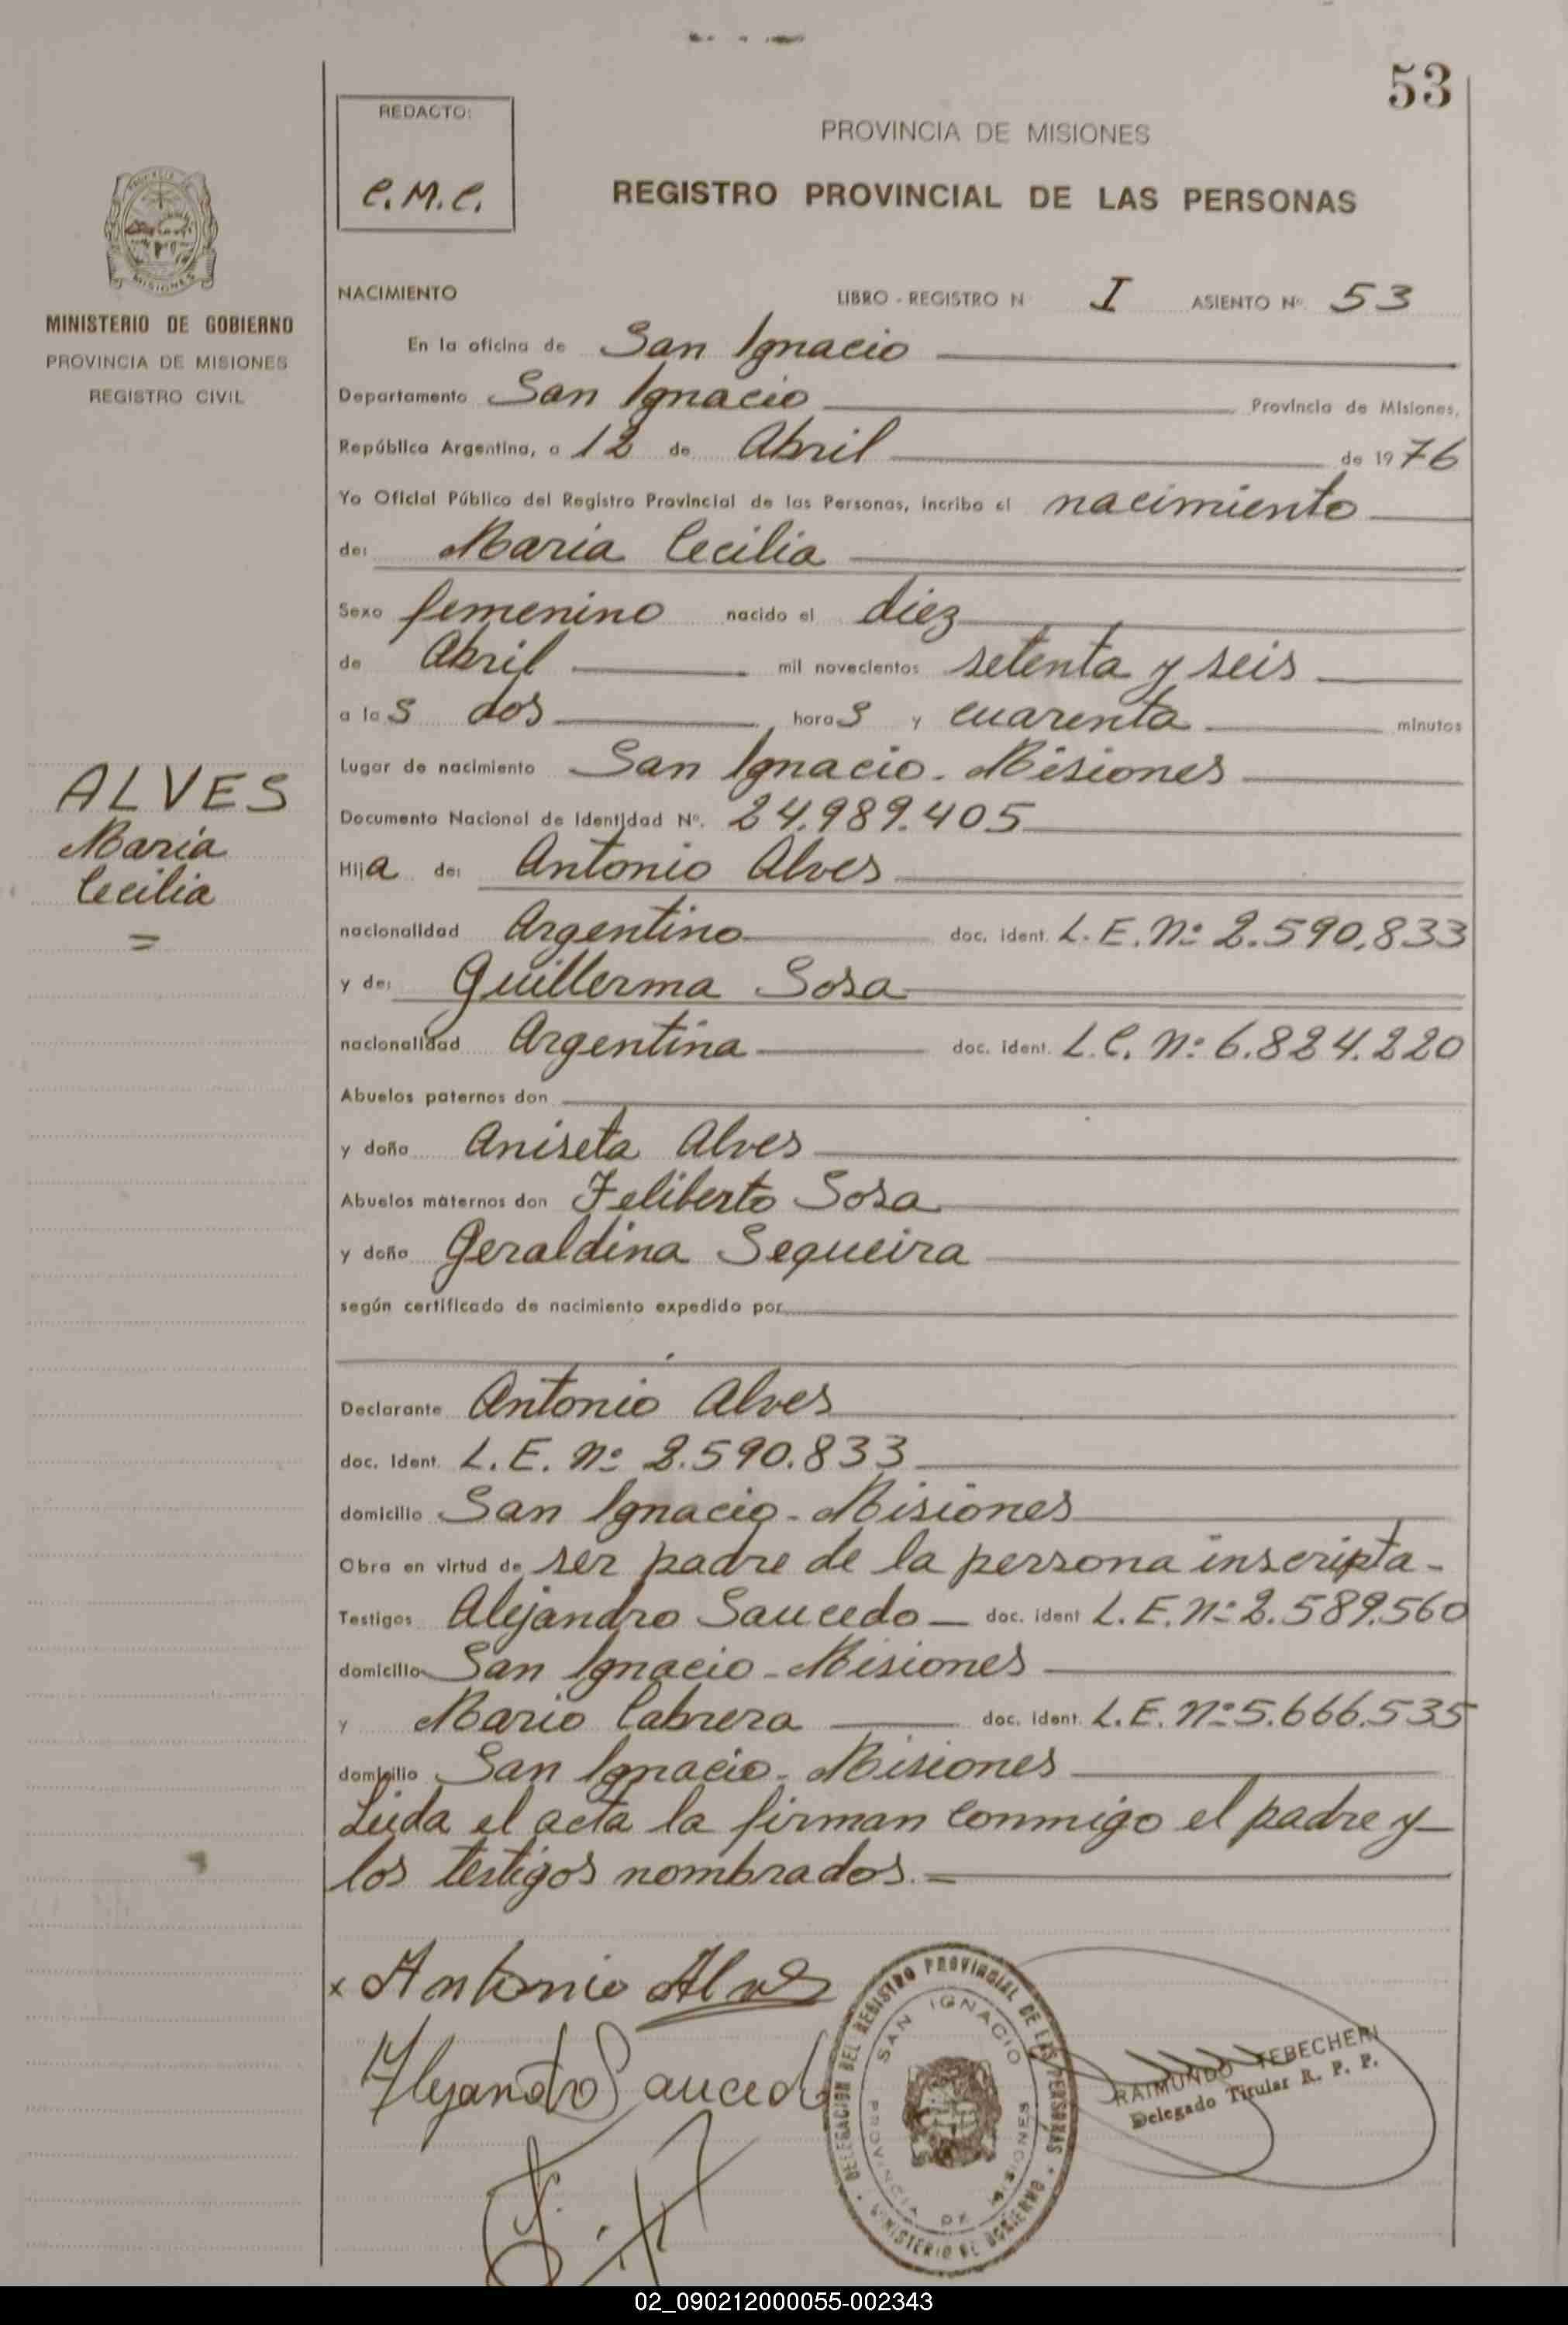 53
REDACTO:
C.M.C.
PROVINCIA DE MISIONES
REGISTRO PROVINCIAL DE LAS PERSONAS
MINISTERIO DE GOBIERNO
PROVINCIA DE MISIONES
REGISTRO CIVIL
NACIMIENTO LIBRO - REGISTRO N I ASIENTO Nº. 53
En la oficina de San Ignacio
Departamento San Ignacio Provincia de Misiones,
República Argentina, a 12 de Abril de 1976
Yo Oficial Público del Registro Provincial de las Personas, incribo el nacimiento
de: Maria Cecilia
Sexo femenino nacido el diez
de Abril mil novecientos setenta y seis
a las dos horas y cuarenta minutos
Lugar de nacimiento San Ignacio - Misiones
Documento Nacional de Identidad Nº. 24.989.405
ALVES
Maria
Cecilia
=
Hija de: Antonio Alves
nacionalidad Argentino doc. ident. L.E. Nº 2.590.833
y de: Guillerma Sosa
nacionalidad Argentina doc. ident. L.C. Nº 6.824.220
Abuelos paternos don
y doña Aniseta Alves
Abuelos maternos don Feliberto Sosa
y doña Geraldina Sequeira
según certificado de nacimiento expedido por
Declarante Antonio Alves
doc. ident. L.E. Nº 2.590.833
domicilio San Ignacio - Misiones
Obra en virtud de ser padre de la persona inscripta -
Testigos Alejandro Saucedo — doc. ident L.E. Nº 2.589.560
domicilio San Ignacio - Misiones
y Mario Cabrera doc. ident. L.E. Nº 5.666.535
domicilio San Ignacio - Misiones
Leida el acta la firman conmigo el padre y
los testigos nombrados. =
x Antonio Alves
Alejandro Saucedo
DELEGACION DEL REGISTRO PROVINCIAL DE LAS PERSONAS
SAN IGNACIO
PROVINCIA DE MISIONES
MINISTERIO DE GOBIERNO
RAIMUNDO TEBECHERI
Delegado Titular R. P. P.
02_090212000055-002343